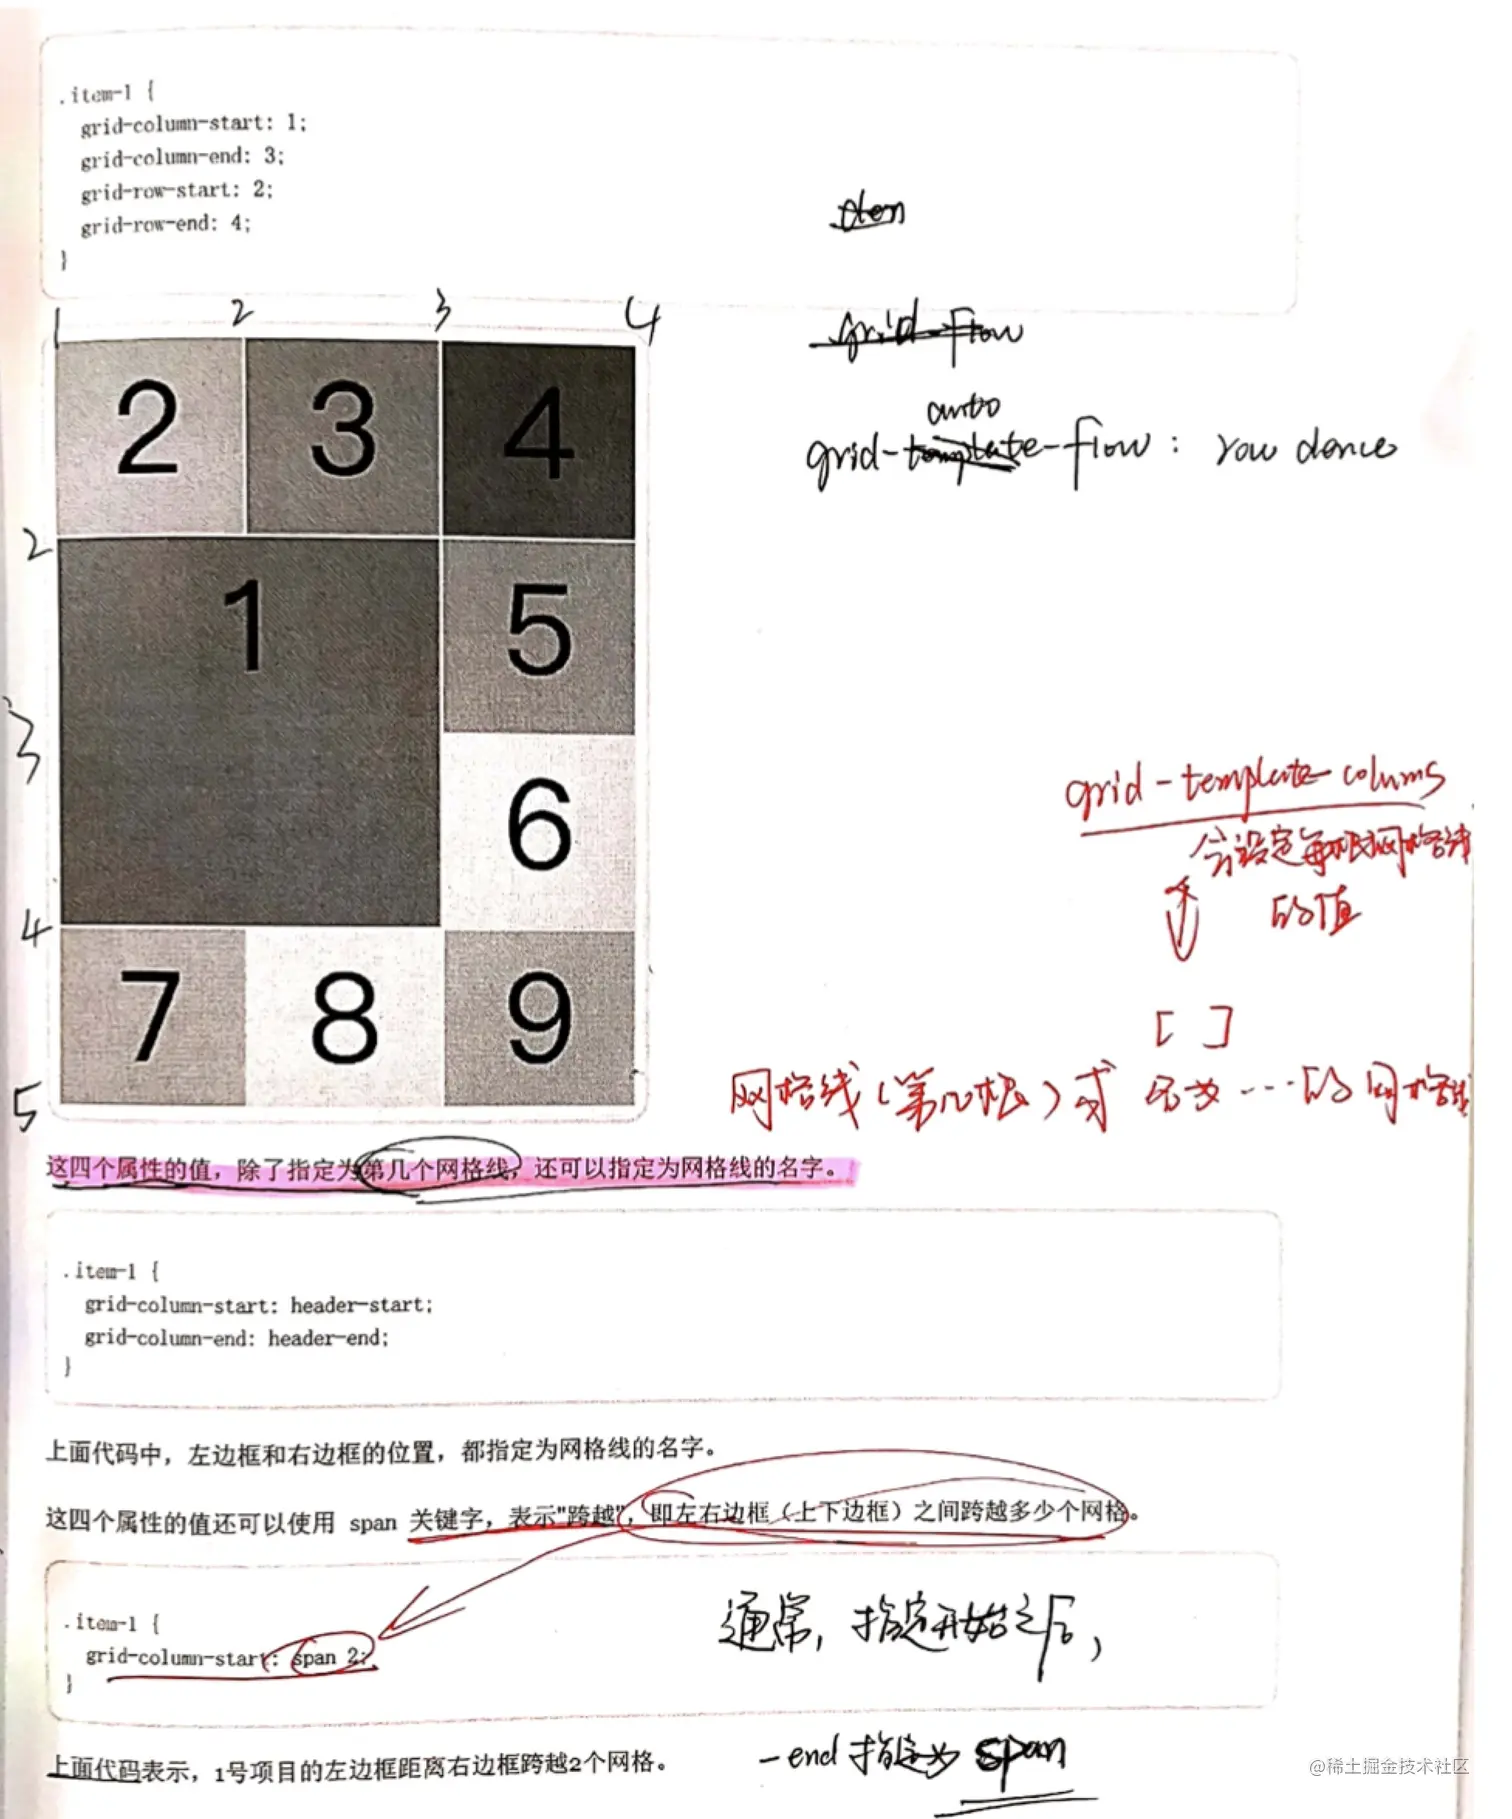 .item-1 {
grid-column-start: 1;
grid-column-end: 3;
grid-row-start: 2;
grid-row-end: 4;
}
grid-flow
auto
grid-template-flow: row dence
1 2 3 4
2 3 4
2
1 5
3
6
4
7 8 9
5
grid-template-colums
会设定每根网格线
的值
[ ]
网格线(第几根)或 名为...的网格线
这四个属性的值，除了指定为第几个网格线，还可以指定为网格线的名字。
.item-1 {
grid-column-start: header-start;
grid-column-end: header-end;
}
上面代码中，左边框和右边框的位置，都指定为网格线的名字。
这四个属性的值还可以使用 span 关键字，表示"跨越"，即左右边框（上下边框）之间跨越多少个网格。
.item-1 {
grid-column-start: span 2;
}
通常,指定开始之后,
-end 指定为 span
上面代码表示，1号项目的左边框距离右边框跨越2个网格。
@稀土掘金技术社区